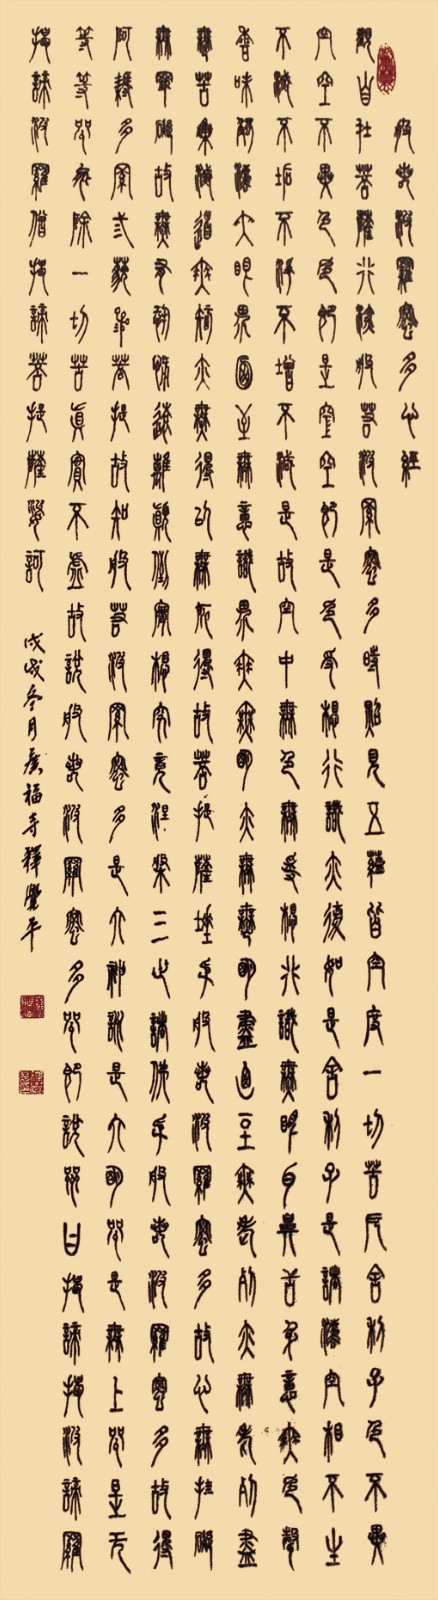 般若波羅蜜多心經
觀自在菩薩行深般若波羅蜜多時照見五蘊皆空度一切苦厄舍利子色不異
空空不異色色即是空空即是色受想行識亦復如是舍利子是諸法空相不生
不滅不垢不淨不增不減是故空中無色無受想行識無眼耳鼻舌身意無色聲
香味觸法無眼界乃至無意識界無無明亦無無明盡乃至無老死亦無老死盡
無苦集滅道無智亦無得以無所得故菩提薩埵依般若波羅蜜多故心無罣礙
無罣礙故無有恐怖遠離顛倒夢想究竟涅槃三世諸佛依般若波羅蜜多故得
阿耨多羅三藐三菩提故知般若波羅蜜多是大神咒是大明咒是無上咒是无
等等咒能除一切苦真實不虛故說般若波羅蜜多咒即說咒曰揭諦揭波諦羅
揭諦波羅僧揭諦菩提薩婆訶
戊戌冬月廣福寺釋覺平